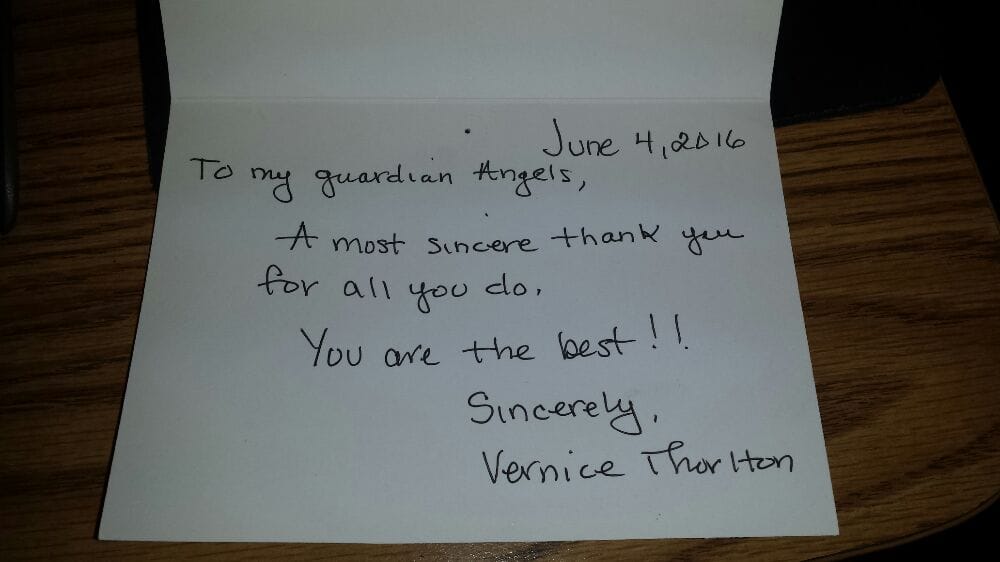 June 4, 2016
To my guardian Angels,
A most sincere thank you
for all you do.
You are the best!!
Sincerely,
Vernice Thorlton